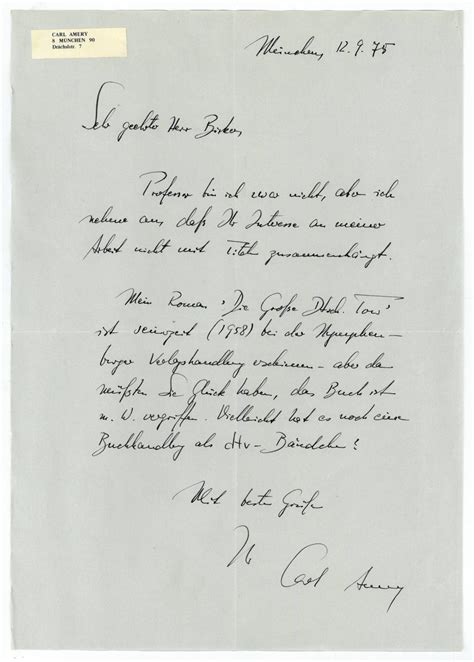 CARL AMERY
8 MÜNCHEN 90
Drächslstr. 7
München, 12.9.75
Sehr geehrter Herr
Professor bin ich zwar nicht, aber ich
nehme an, daß Ihr Interesse an meiner
Arbeit nicht mit Titeln zusammenhängt.
Mein Roman "Die Große Dtsch. Tour"
ist seinerzeit (1958) bei der Nymphen-
burger Verlagshandlung erschienen - aber da
müßten Sie Glück haben, das Buch ist
m. W. vergriffen. Vielleicht hat es noch eine
Buchhandlung als dtv-Bändchen?
Mit besten Grüßen
Ihr
Carl Amery